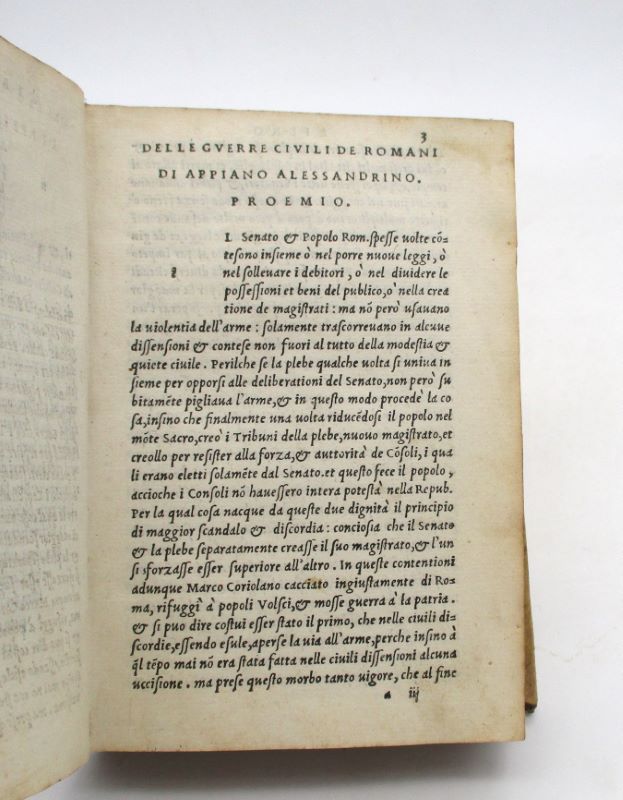 3
DELLE GVERRE CIVILI DE ROMANI
DI APPIANO ALESSANDRINO.
PROEMIO.
L Senato & Popolo Rom. ſpeſſe uolte cõ-
i
teſono inſieme ò nel porre nuoue leggi, ò
nel ſolleuare i debitori, ò nel diuidere le
poſſeſſioni et beni del publico, o nella crea
tione de magiſtrati: ma nõ però uſauano
la uiolentia dell'arme: ſolamente traſcorreuano in alcuue
diſſenſioni & conteſe non fuori al tutto della modeſtia &
quiete ciuile. Perilche ſe la plebe qualche uolta ſi uniua in
ſieme per opporſi alle deliberationi del Senato, non però ſu
bitamẽte pigliaua l'arme, & in queſto modo procedè la co
ſa, inſino che finalmente una uolta riducẽdoſi il popolo nel
mõte Sacro, creò i Tribuni della plebe, nuouo magiſtrato, et
creollo per reſiſter alla forza, & auttorità de Cõſoli, i qua
li erano eletti ſolamẽte dal Senato. et queſto fece il popolo,
accioche i Conſoli nõ haueſſero intera poteſtà nella Repub.
Per la qual coſa nacque da queſte due dignità il principio
di maggior ſcandalo & diſcordia: concioſia che il Senato
& la plebe ſeparatamente creaſſe il ſuo magiſtrato, & l'un
ſi sforzaſſe eſſer ſuperiore all'altro. In queſte contentioni
adunque Marco Coriolano cacciato ingiuſtamente di Ro-
ma, rifuggi à popoli Volſci, & moſſe guerra à la patria.
& ſi puo dire coſtui eſſer ſtato il primo, che nelle ciuili di-
ſcordie, eſſendo eſule, aperſe la uia all'arme, perche inſino à
q̃l tẽpo mai nõ era ſtata fatta nelle ciuili diſſenſioni alcuna
ucciſione. ma preſe queſto morbo tanto uigore, che al fine
a iij